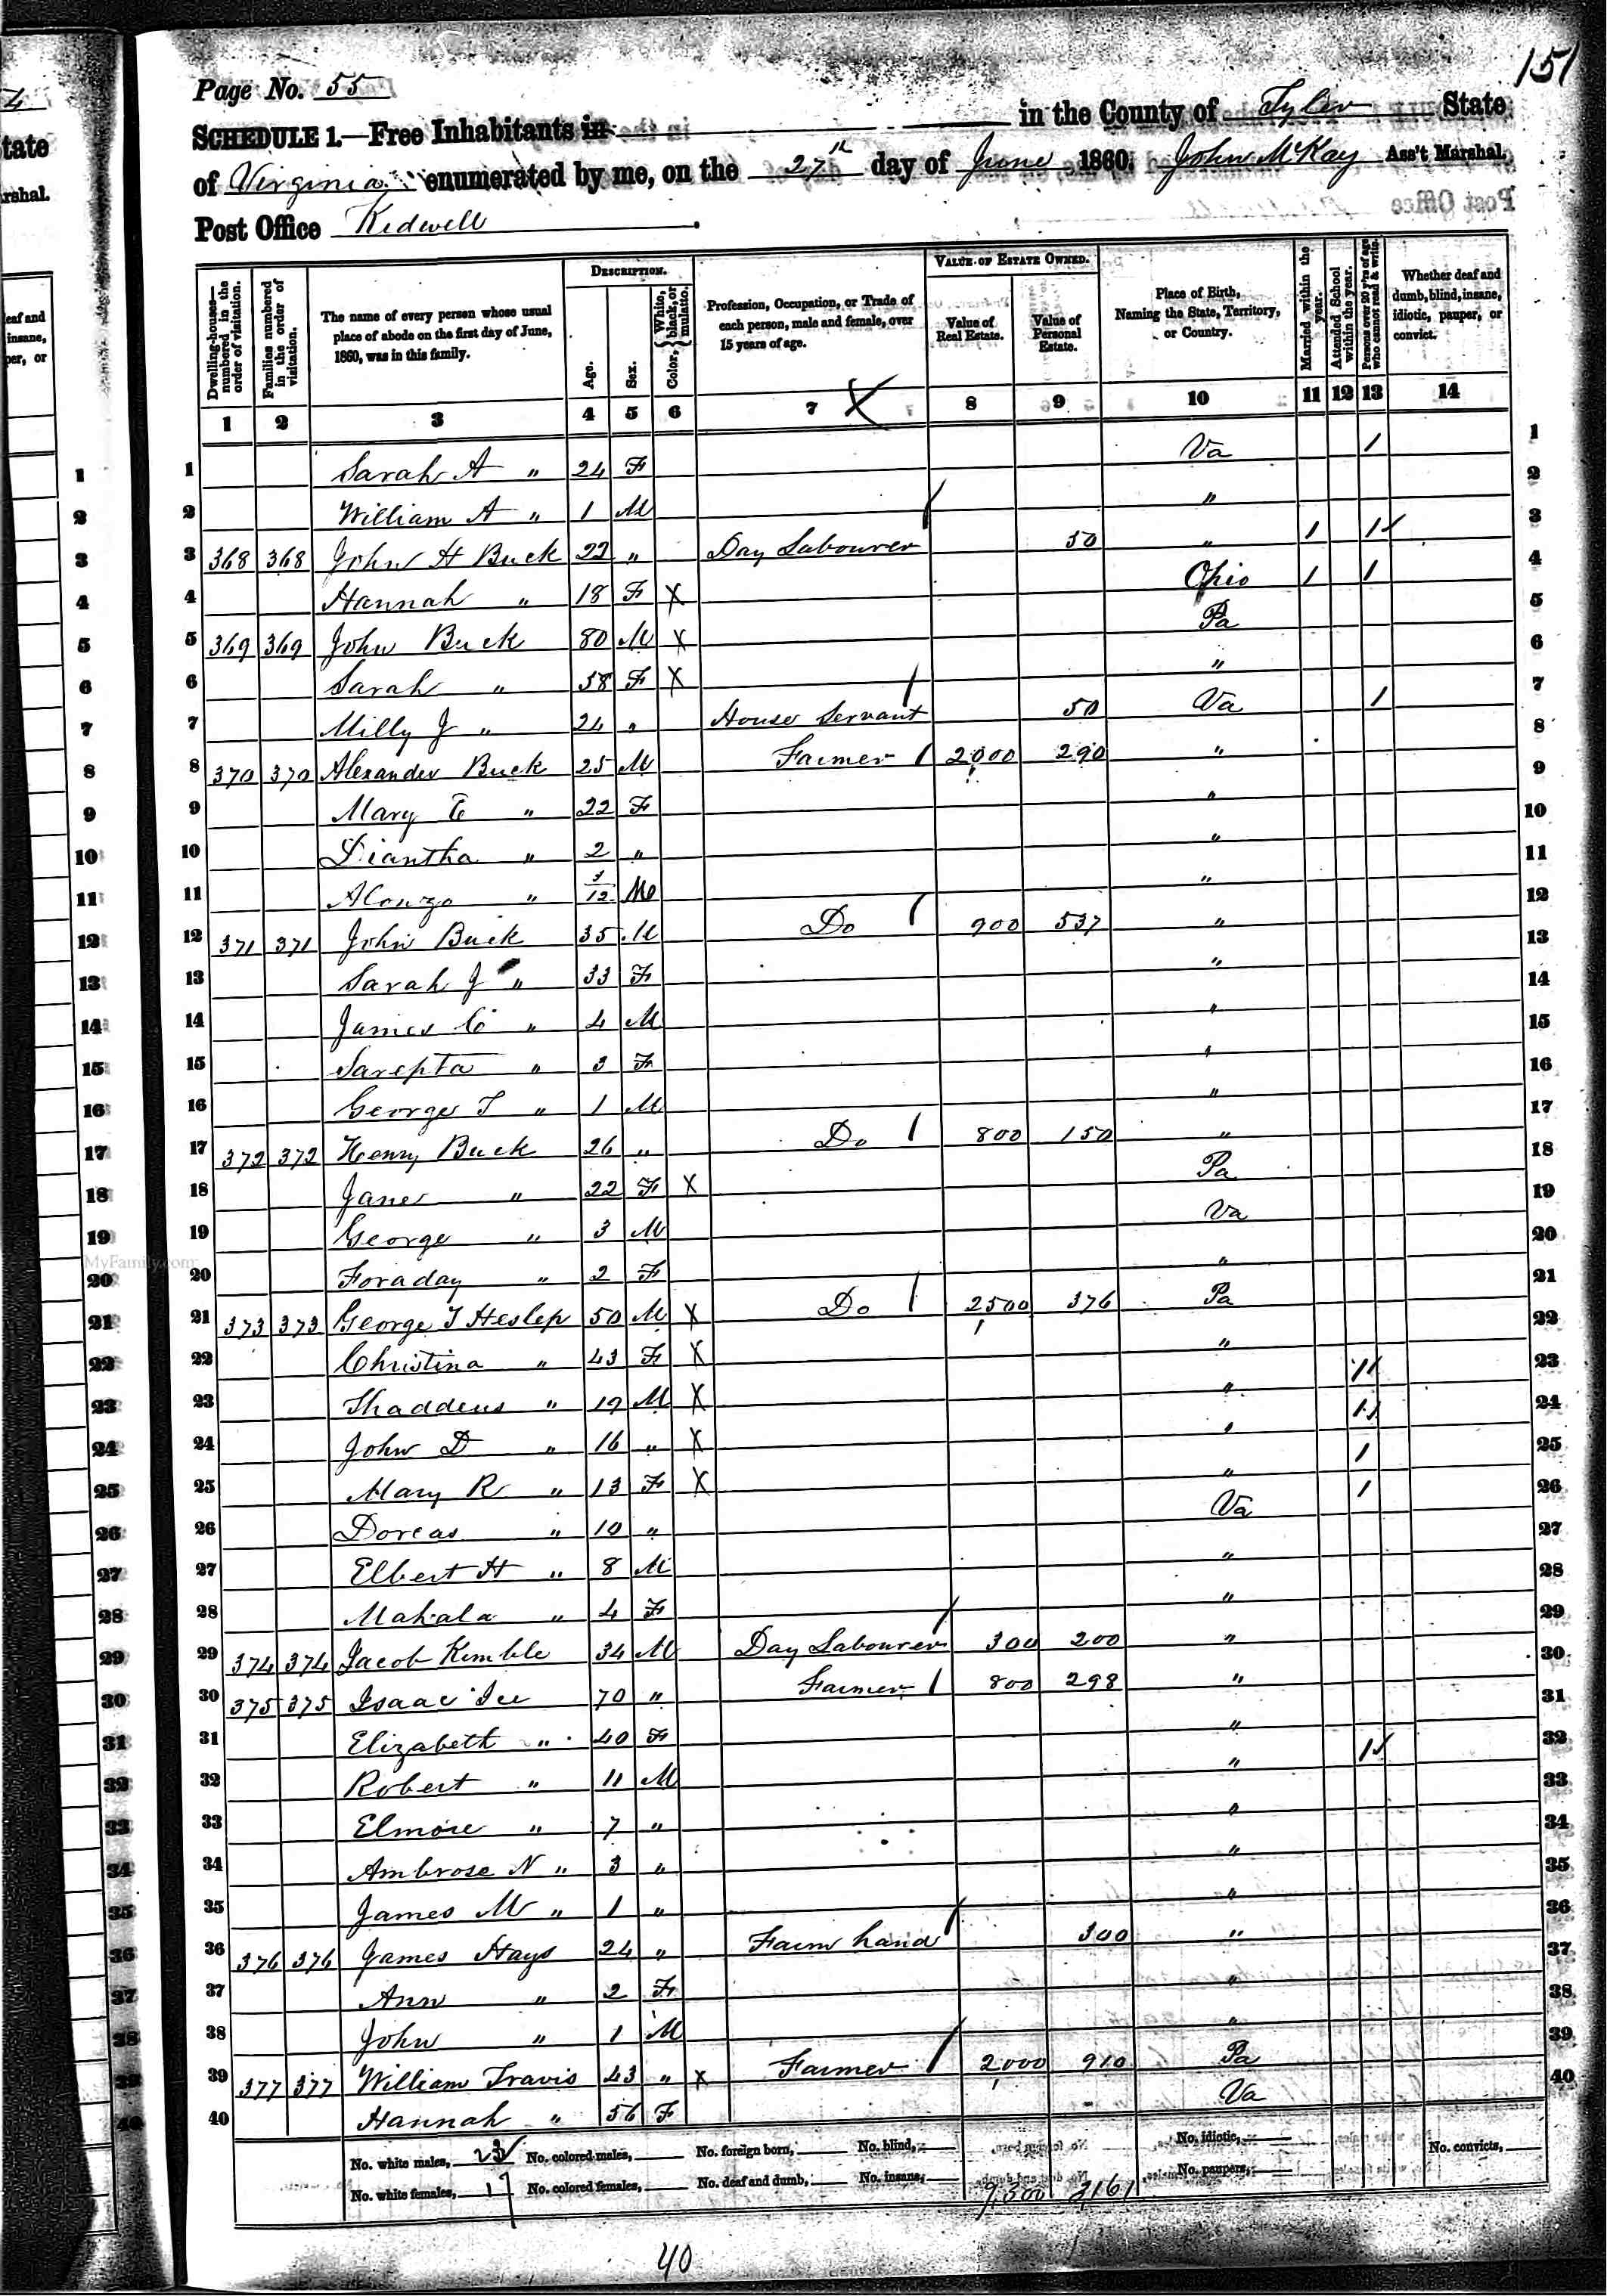 151
Page No. 55
SCHEDULE 1.—Free Inhabitants in in the County of Tyler State
of Virginia enumerated by me, on the 27th day of June 1860. John McKay Ass't Marshal.
Post Office Kidwell
Dwelling-houses—numbered in the order of visitation. Families numbered in the order of visitation. The name of every person whose usual place of abode on the first day of June, 1860, was in this family. DESCRIPTION. Age. Sex. Color, White, black, or mulatto. Profession, Occupation, or Trade of each person, male and female, over 15 years of age. VALUE OF ESTATE OWNED. Value of Real Estate. Value of Personal Estate. Place of Birth, Naming the State, Territory, or Country. Married within the year. Attended School within the year. Persons over 20 y'rs of age who cannot read & write. Whether deaf and dumb, blind, insane, idiotic, pauper, or convict.
1 2 3 4 5 6 7 X 8 9 10 11 12 13 14
1 Sarah A " 24 F Va 1 1
2 William A " 1 M " 2
3 368 368 John H Buck 22 " Day Labourer / 50 " 1 1 3
4 Hannah " 18 F X Ohio 1 1 4
5 369 369 John Buck 80 M X Pa 5
6 Sarah " 58 F X " 6
7 Milly J " 24 " House Servant / 50 Va 1 7
8 370 370 Alexander Buck 25 M Farmer / 2000 290 " 8
9 Mary E " 22 F " 9
10 Diantha " 2 " " 10
11 Alonzo " 3/12 M " 11
12 371 371 John Buck 35 M Do / 900 537 " 12
13 Sarah J " 33 F " 13
14 James C " 4 M " 14
15 Sarepta " 3 F " 15
16 George T " 1 M " 16
17 372 372 Henry Buck 26 " Do / 800 150 " 17
18 Jane " 22 F X Pa 18
19 George " 3 M Va 19
20 Foraday " 2 F " 20
21 373 373 George T Heslep 50 M X Do / 2500 376 Pa 21
22 Christina " 43 F X " 22
23 Thaddeus " 19 M X " 1 23
24 John D " 16 " X " 1 24
25 Mary R " 13 F X " 1 25
26 Dorcas " 10 " Va 1 26
27 Elbert H " 8 M " 27
28 Mahala " 4 F " 28
29 374 374 Jacob Kimble 34 M Day Labourer / 300 200 " 29
30 375 375 Isaac Ice 70 " Farmer / 800 298 " 30
31 Elizabeth " 40 F " 31
32 Robert " 11 M " 1 32
33 Elmore " 7 " " 33
34 Ambrose N " 3 " " 34
35 James M " 1 " " 35
36 376 376 James Hays 24 " Farm hand / 300 " 36
37 Ann " 2 F " 37
38 John " 1 M " 38
39 377 377 William Travis 43 " X Farmer / 2000 910 Pa 39
40 Hannah " 56 F Va 40
No. white males, 23 No. colored males, No. foreign born, No. blind, No. idiotic, No. convicts,
No. white females, 17 No. colored females, No. deaf and dumb, No. insane, 9,300 3161 No. paupers,
40
MyFamily.com